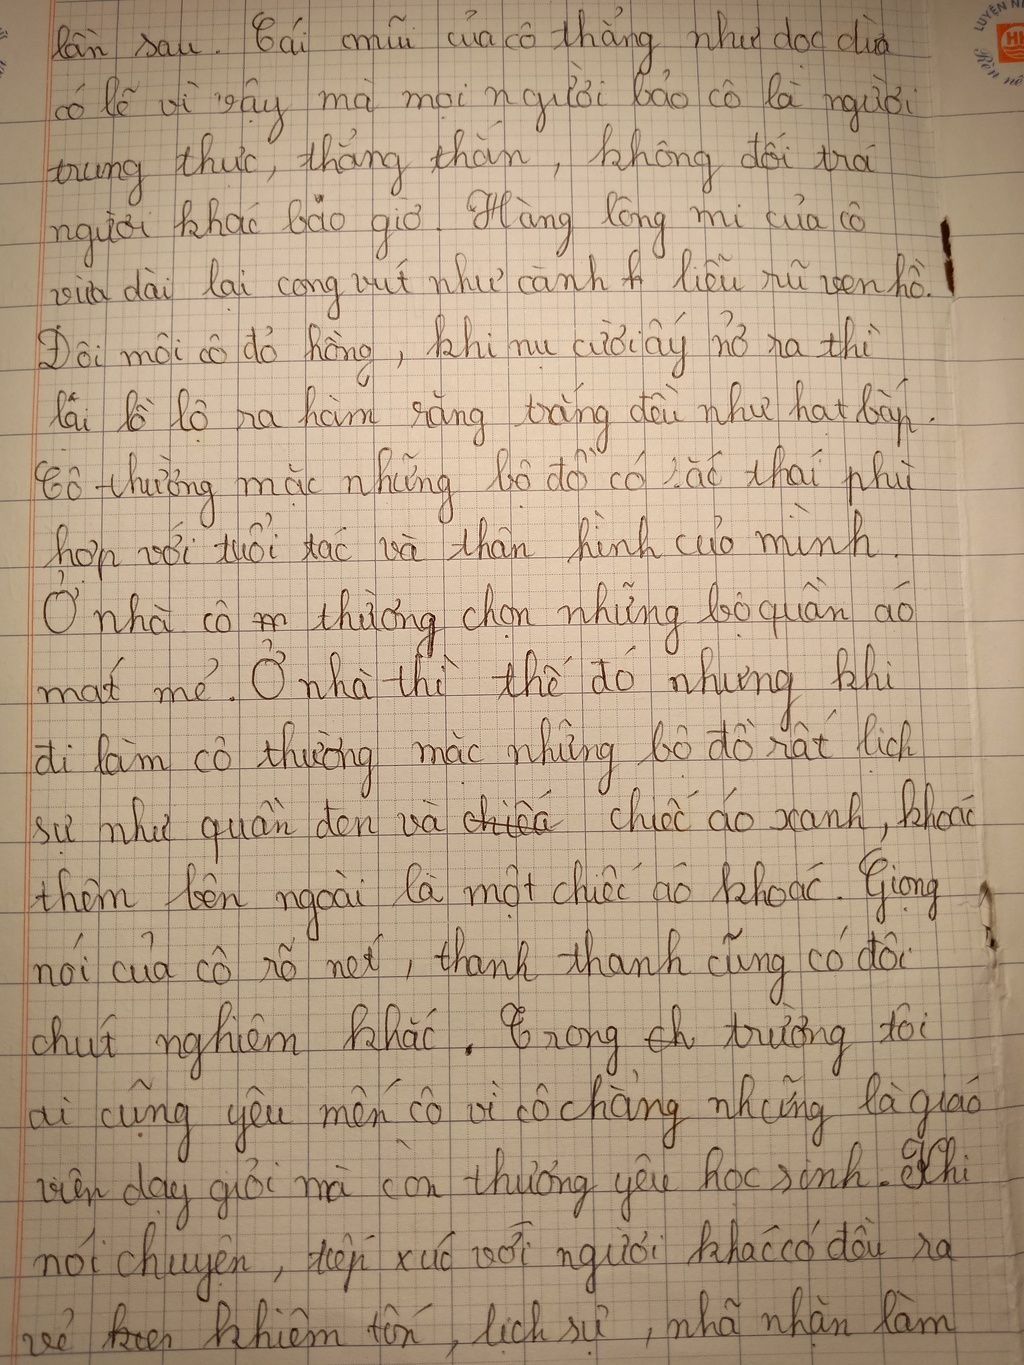 LUYỆN
lần sau. Cái mũi của cô thẳng như dọc dừa
có lẽ vì vậy mà mọi người bảo cô là người
trung thực, thẳng thắn, không dối trá
người khác bao giờ. Hàng lông mi của cô
vừa dài lại cong vút như cành liễu rũ ven hồ.
Đôi môi cô đỏ hồng, khi nụ cười ấy nở ra thì
lại lồ lộ ra hàm răng trắng đều như hạt bắp.
Cô thường mặc những bộ đồ có sắc thái phù
hợp với tuổi tác và thân hình của mình.
Ở nhà cô thường chọn những bộ quần áo
mát mẻ. Ở nhà thì thế đó nhưng khi
đi làm cô thường mặc những bộ đồ rất lịch
sự như quần đen và chiếc áo xanh, khoác
thêm bên ngoài là một chiếc áo khoác. Giọng
nói của cô rõ nét, thanh thanh cũng có đôi
chút nghiêm khắc. Trong trường tôi
ai cũng yêu mến cô vì cô chẳng những là giáo
viên dạy giỏi mà còn thương yêu học sinh. Khi
nói chuyện, tiếp xúc với người khác cô đều ra
vẻ khiêm tốn, lịch sự, nhã nhặn làm